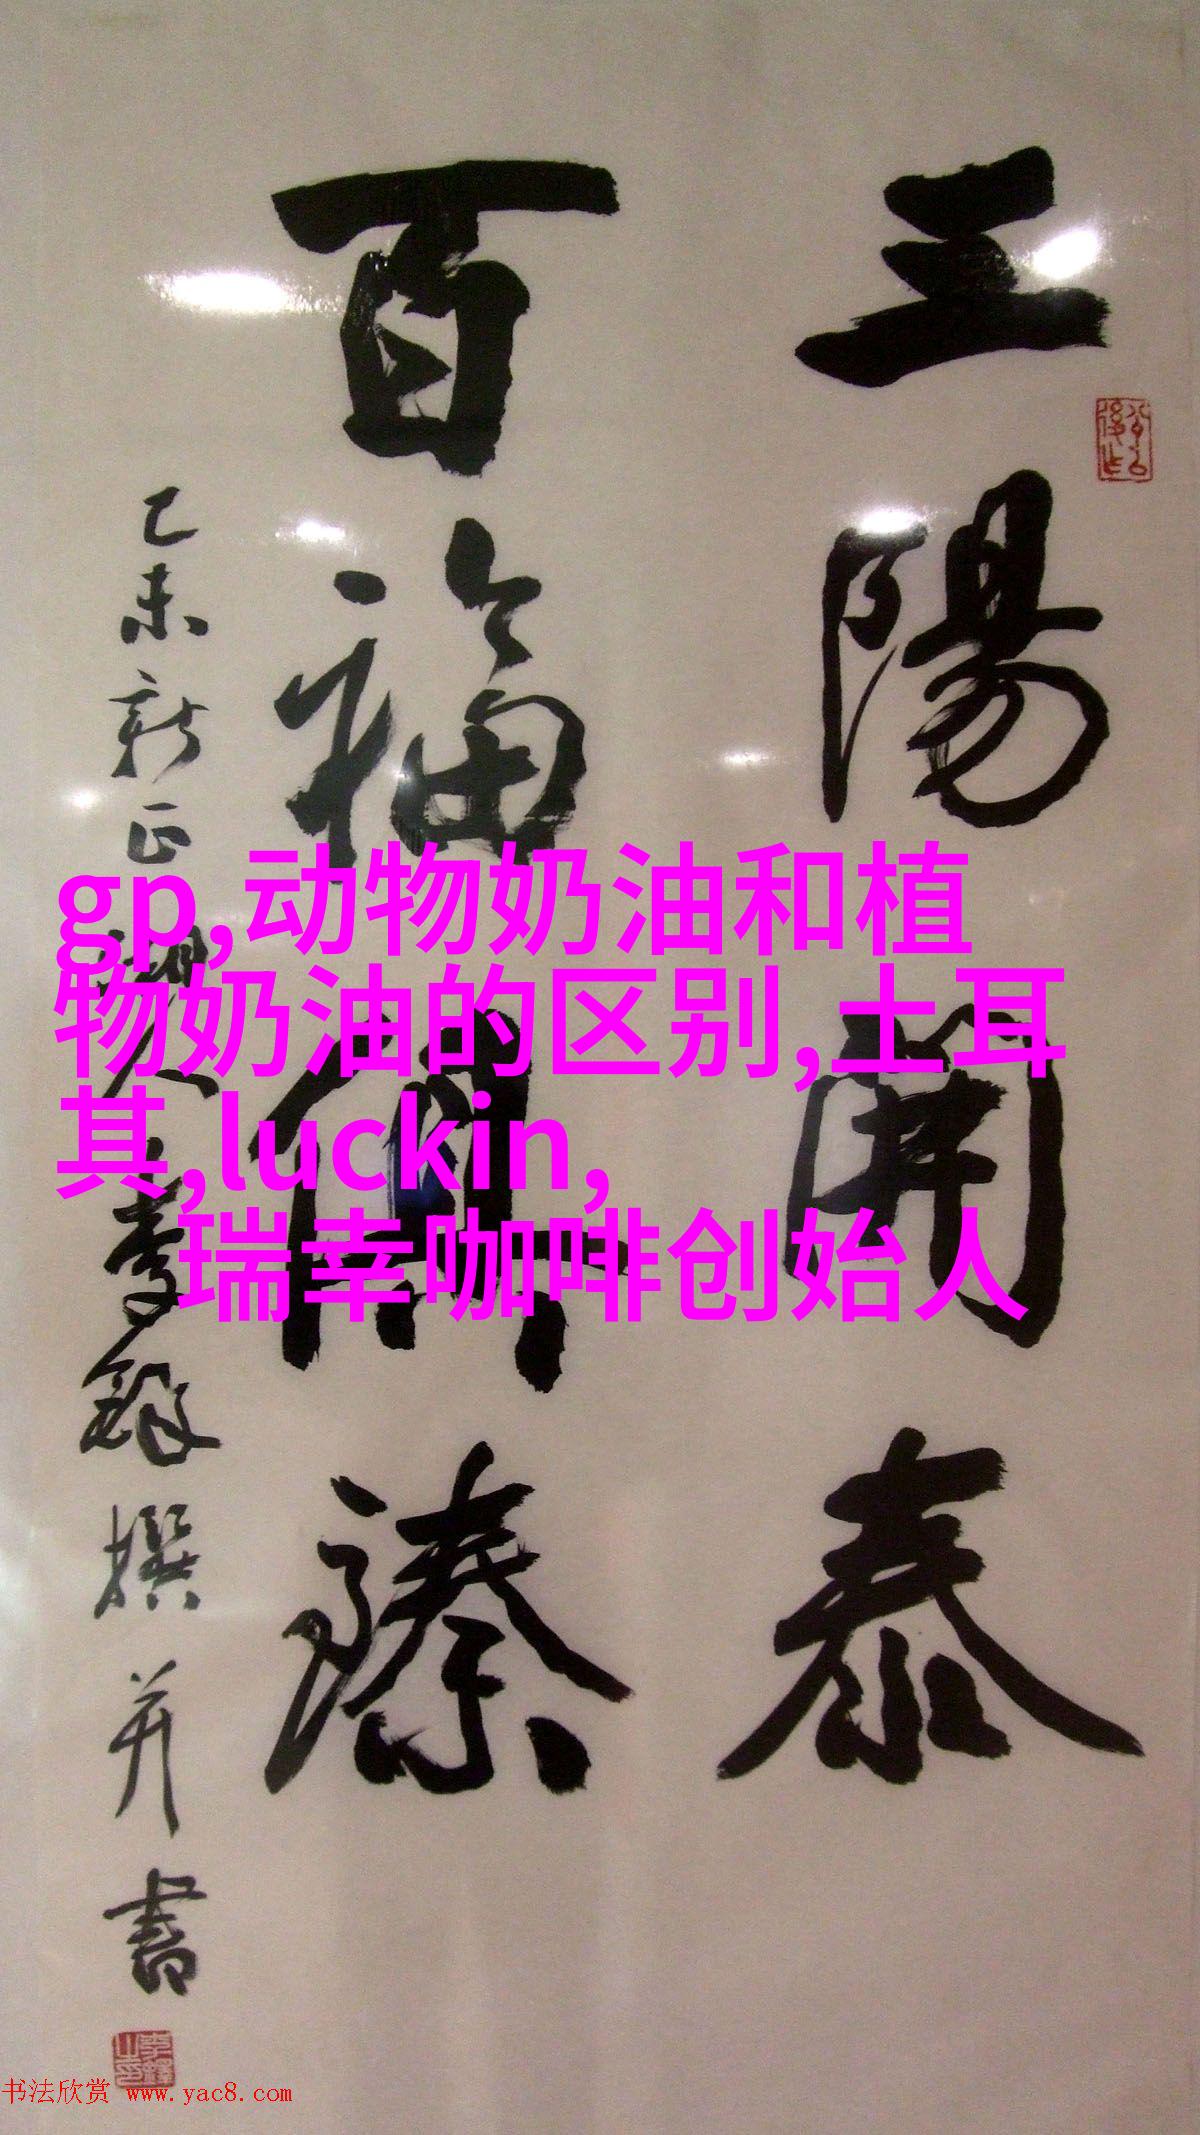 三陽開泰
百福俱臻
乙未新正
人李鐸撰并書
gp,动物奶油和植
物奶油的区别,土耳
其,luckin,
瑞幸咖啡创始人
书法欣赏 www.yac8.com